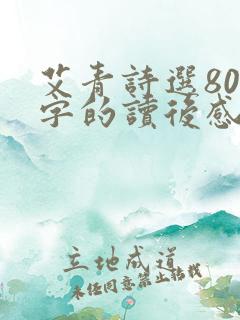 艾青詩選80
字的讀後感
立地成道
未经同意禁止转载